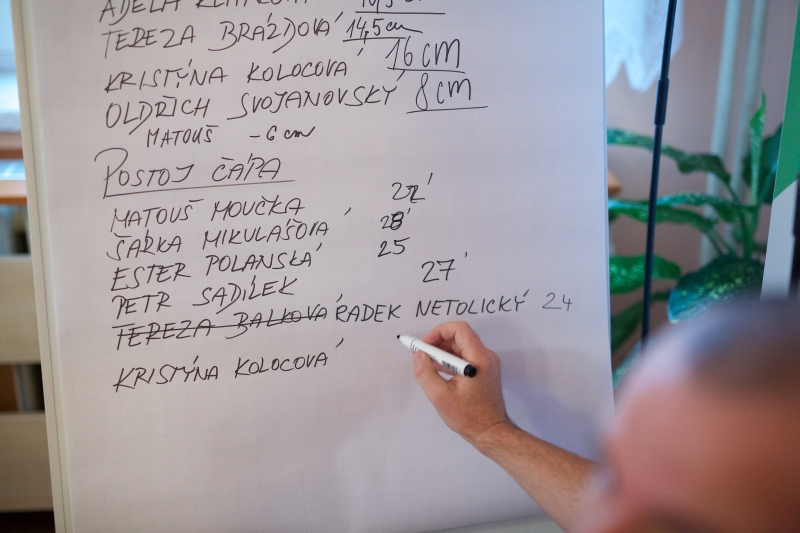 ADÉLA
TEREZA BRÁZDOVÁ 14,5 cm
KRISTÝNA KOLOCOVÁ 16 cm
OLDŘICH SVOJANOVSKÝ 8 cm
MATOUŠ - 6 cm
POSTOJ ČÁPA
MATOUŠ MOUČKA 22'
ŠÁRKA MIKULÁŠOVÁ 28'
ESTER POLANSKÁ 25
PETR SADÍLEK 27'
TEREZA BALKOVÁ RADEK NETOLICKÝ 24
KRISTÝNA KOLOCOVÁ